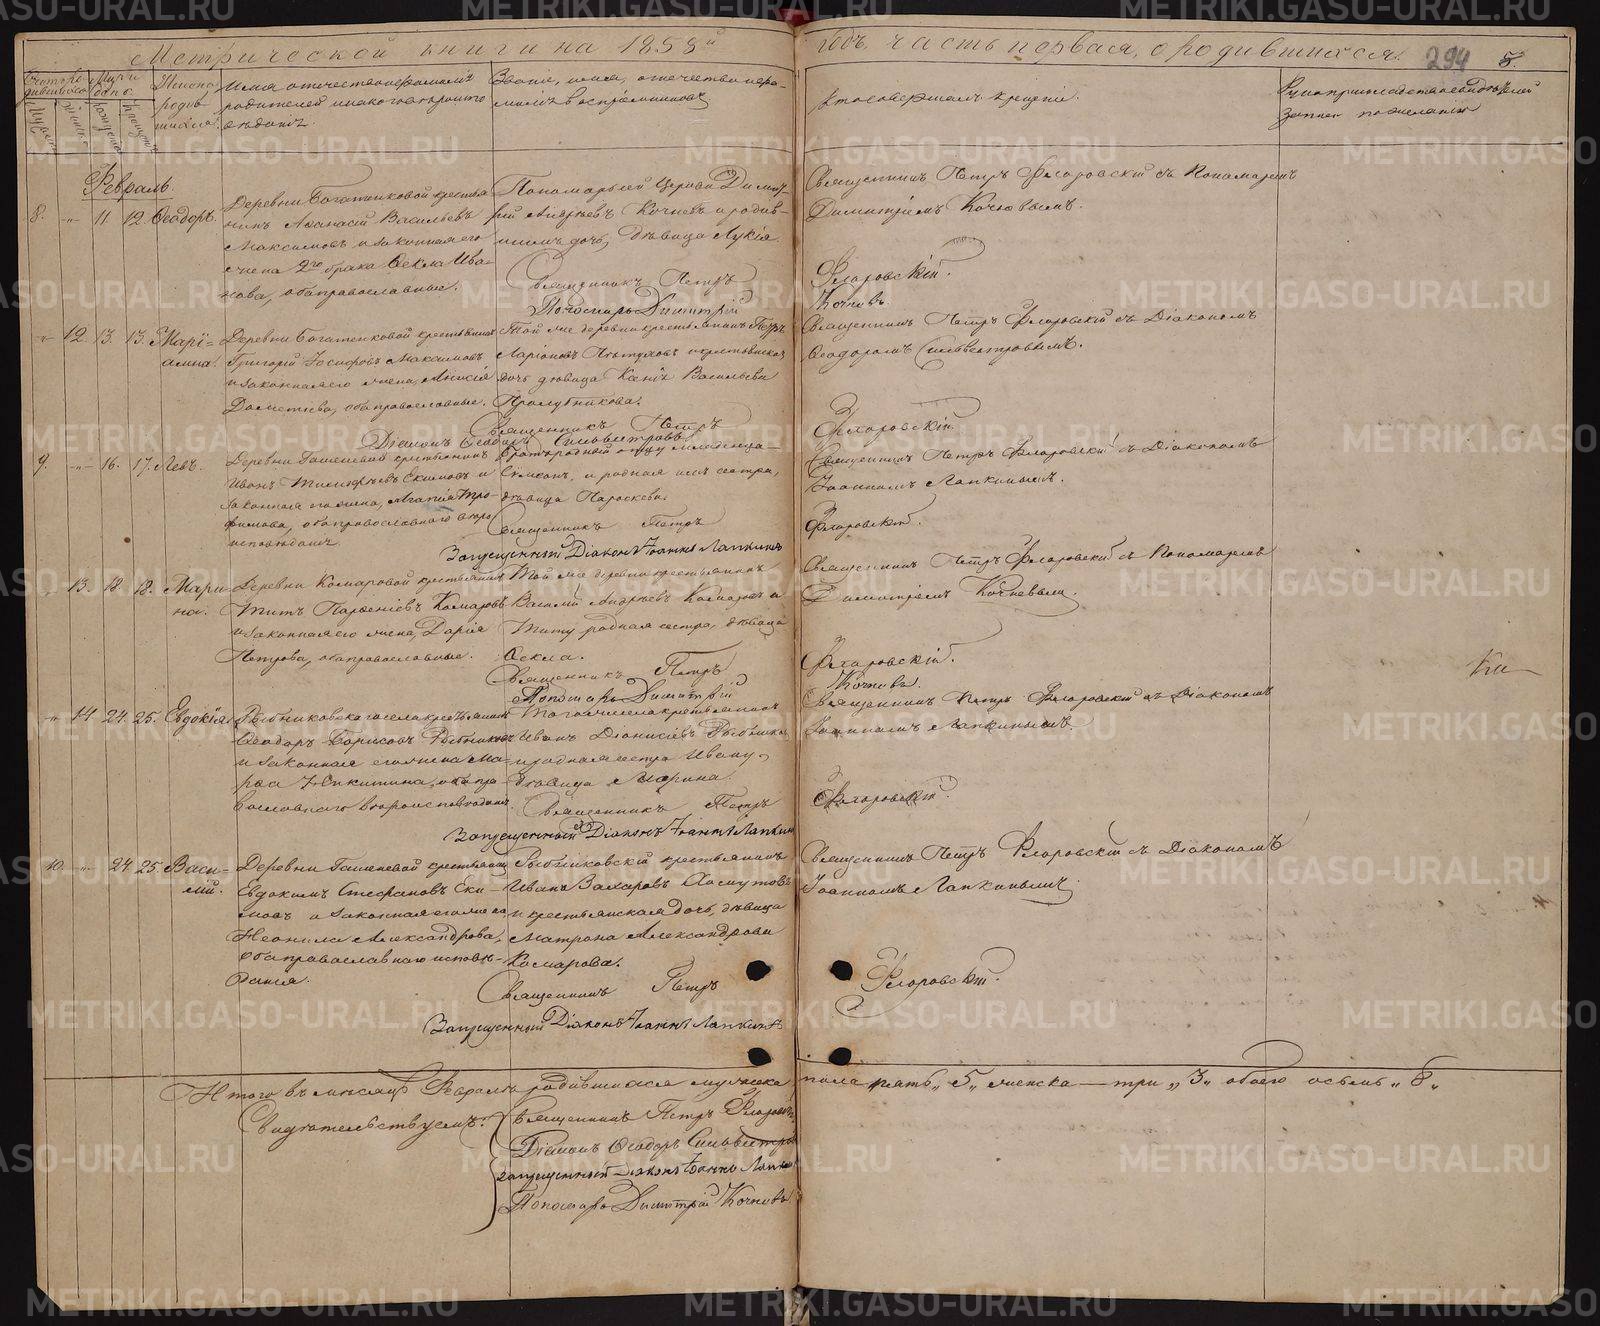 Метрической книги на 1858й
годъ, часть первая, о родившихся.
294
5.
Имя отчество и фамилія
родителей и какого вѣроиспо
вѣданія.
Званіе, имя, отчество и фа-
милія воспріемниковъ
Кто совершалъ крещеніе.
Февраль.
8. 11. 12. Ѳеодоръ.
Деревни Богатенковой крестья
нинъ Аѳанасій Васильевъ
Максимовъ и законная его
жена 2го брака Ѳекла Ива-
нова, оба православные.
Пономарь сей церкви Димит-
рій Андреевъ Кочневъ и родив-
шимъ дочь, дѣвица Лукія.
Священникъ Петръ
Пономарь Димитрій
Священникъ Петръ Флоровскій съ Пономаремъ
Димитріемъ Кочневымъ.
Флоровскій.
Кочневъ.
12. 13. 13. Марі-
амна.
Деревни Богатенковой крестьянинъ
Григорій Іосифовъ Максимовъ
и законная его жена, Анисія
Дометіева, оба православные.
Той же деревни крестьянинъ Петръ
Ларіоновъ Пѣтуховъ и крестьянская
дочь дѣвица Ксенія Васильева
Пролубникова.
Священникъ Петръ
Діаконъ Ѳеодоръ Сильвестровъ
Священникъ Петръ Флоровскій съ Діакономъ
Ѳеодоромъ Сильвестровымъ.
Флоровскій
9. 16. 17. Левъ.
Деревни Гашеневой крестьянинъ
Иванъ Тимофѣевъ Екимовъ и
законная его жена, Агапія Тро-
фимова, оба православнаго вѣро
исповѣданія.
братъ родной отцу младенца
Симеонъ, и родная имъ сестра,
дѣвица Параскева.
Священникъ Петръ
Запрещенный Діаконъ Іоаннъ Лапкинъ
Священникъ Петръ Флоровскій съ Діакономъ
Іоанномъ Лапкинымъ.
Флоровскій.
13. 18. 18. Мари-
на.
Деревни Комаровой крестьянинъ
Титъ Парѳеніевъ Комаровъ
и законная его жена, Дарія
Петрова, оба православные.
Той же деревни крестьянинъ
Василій Андреевъ Комаровъ и
Титу родная сестра, дѣвица
Ѳекла.
Священникъ Петръ
Пономарь Димитрій
Священникъ Петръ Флоровскій съ Пономаремъ
Димитріемъ Кочневымъ.
Флоровскій.
Кочневъ.
14. 24. 25. Евдокія.
Рыбниковскаго села крестьянинъ
Ѳеодоръ Борисовъ Рыбниковъ
и законная его жена Ма-
рѳа Никитина, оба пра
вославнаго вѣроисповѣданія.
Того же села крестьянинъ
Иванъ Діонисіевъ Рыбников
и родная сестра Ивану,
дѣвица Марина.
Священникъ Петръ
Запрещенный Діаконъ Іоаннъ Лапкинъ
Священникъ Петръ Флоровскій съ Діакономъ
Іоанномъ Лапкинымъ.
Флоровскій.
10. 24. 25. Васи-
лій.
Деревни Гашеневой крестьянинъ
Евдокимъ Стефановъ Еки-
мовъ и законная его жена
Неонила Александрова,
оба православнаго исповѣ-
данія.
Рыбниковскій крестьянинъ
Иванъ Захаровъ Хомутовъ
и крестьянская дочь, дѣвица
Матрона Александрова
Комарова.
Священникъ Петръ
Запрещенный Діаконъ Іоаннъ Лапкинъ
Священникъ Петръ Флоровскій съ Діакономъ
Іоанномъ Лапкинымъ.
Флоровскій.
Итого въ мѣсяцѣ Февралѣ родившихся мужеска пола пять „5„ женска — три „3„ обоего осьмь „8„
Свидѣтельствуемъ:
Священникъ Петръ Флоровскій
Діаконъ Ѳеодоръ Сильвестровъ
Запрещенный Діаконъ Іоаннъ Лапкинъ
Пономарь Димитрій Кочневъ
METRIKI.GASO-URAL.RU